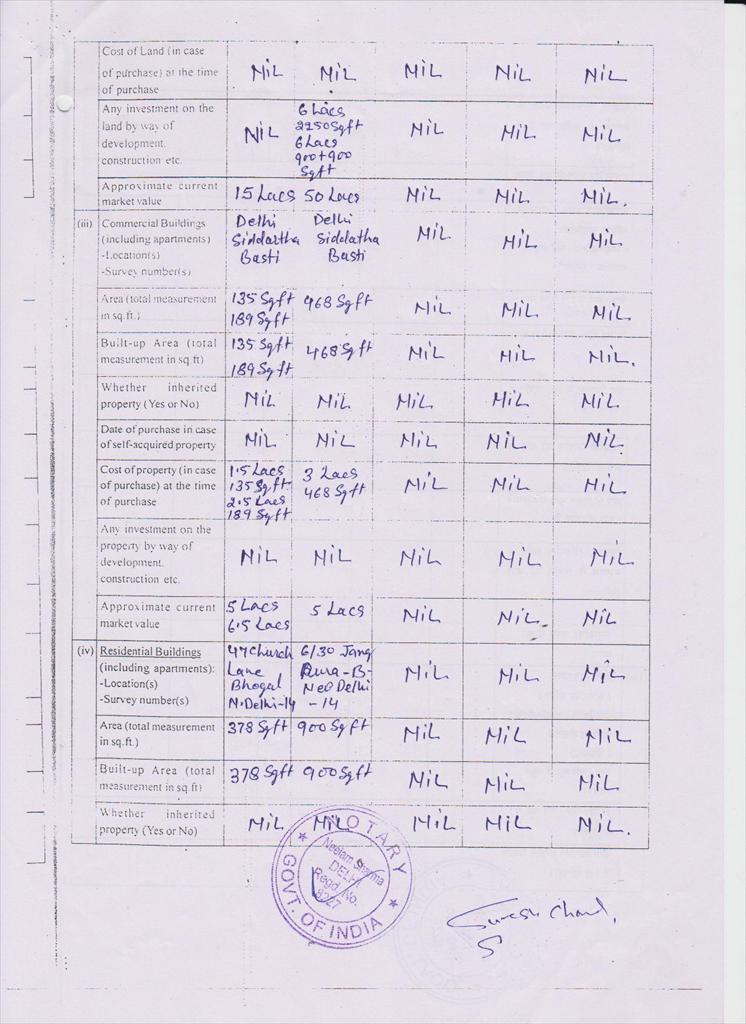 Cost of Land (in case
of purchase) at the time
of purchase
NiL NiL NiL NiL NiL
Any investment on the
land by way of
development,
construction etc.
NiL
6 Lacs
2250 Sqft
6 Lacs
900+900
Sqft
NiL NiL NiL
Approximate current
market value
15 Lacs 50 Lacs NiL NiL NiL.
(iii) Commercial Buildings
(including apartments)
-Location(s)
-Survey number(s)
Delhi
Siddartha
Basti
Delhi
Siddatha
Basti
NiL NiL NiL
Area (total measurement
in sq.ft.)
135 Sqft
189 Sqft
468 Sqft
NiL NiL NiL
Built-up Area (total
measurement in sq.ft)
135 Sqft
189 Sqft
468 Sqft
NiL NiL NiL.
Whether inherited
property (Yes or No)
NiL NiL NiL NiL NiL
Date of purchase in case
of self-acquired property
NiL NiL NiL NiL NiL
Cost of property (in case
of purchase) at the time
of purchase
1.5 Lacs
135 Sqft
2.5 Lacs
189 Sqft
3 Lacs
468 Sqft
NiL NiL NiL
Any investment on the
property by way of
development,
construction etc.
NiL NiL NiL NiL NiL
Approximate current
market value
5 Lacs
6.5 Lacs
5 Lacs
NiL NiL NiL
(iv) Residential Buildings
(including apartments):
-Location(s)
-Survey number(s)
47 Church
Lane
Bhogal
N.Delhi-14
6/30 Jang
Pura-B-
New Delhi
-14
NiL NiL NiL
Area (total measurement
in sq.ft.)
378 Sqft 900 Sqft NiL NiL NiL
Built-up Area (total
measurement in sq.ft)
378 Sqft 900 Sqft NiL NiL NiL
Whether inherited
property (Yes or No)
NiL NiL NiL NiL NiL.
NOTARY
Neelam Sharma
DELHI
Regd. No.
8227
GOVT. OF INDIA
Suresh Chand,